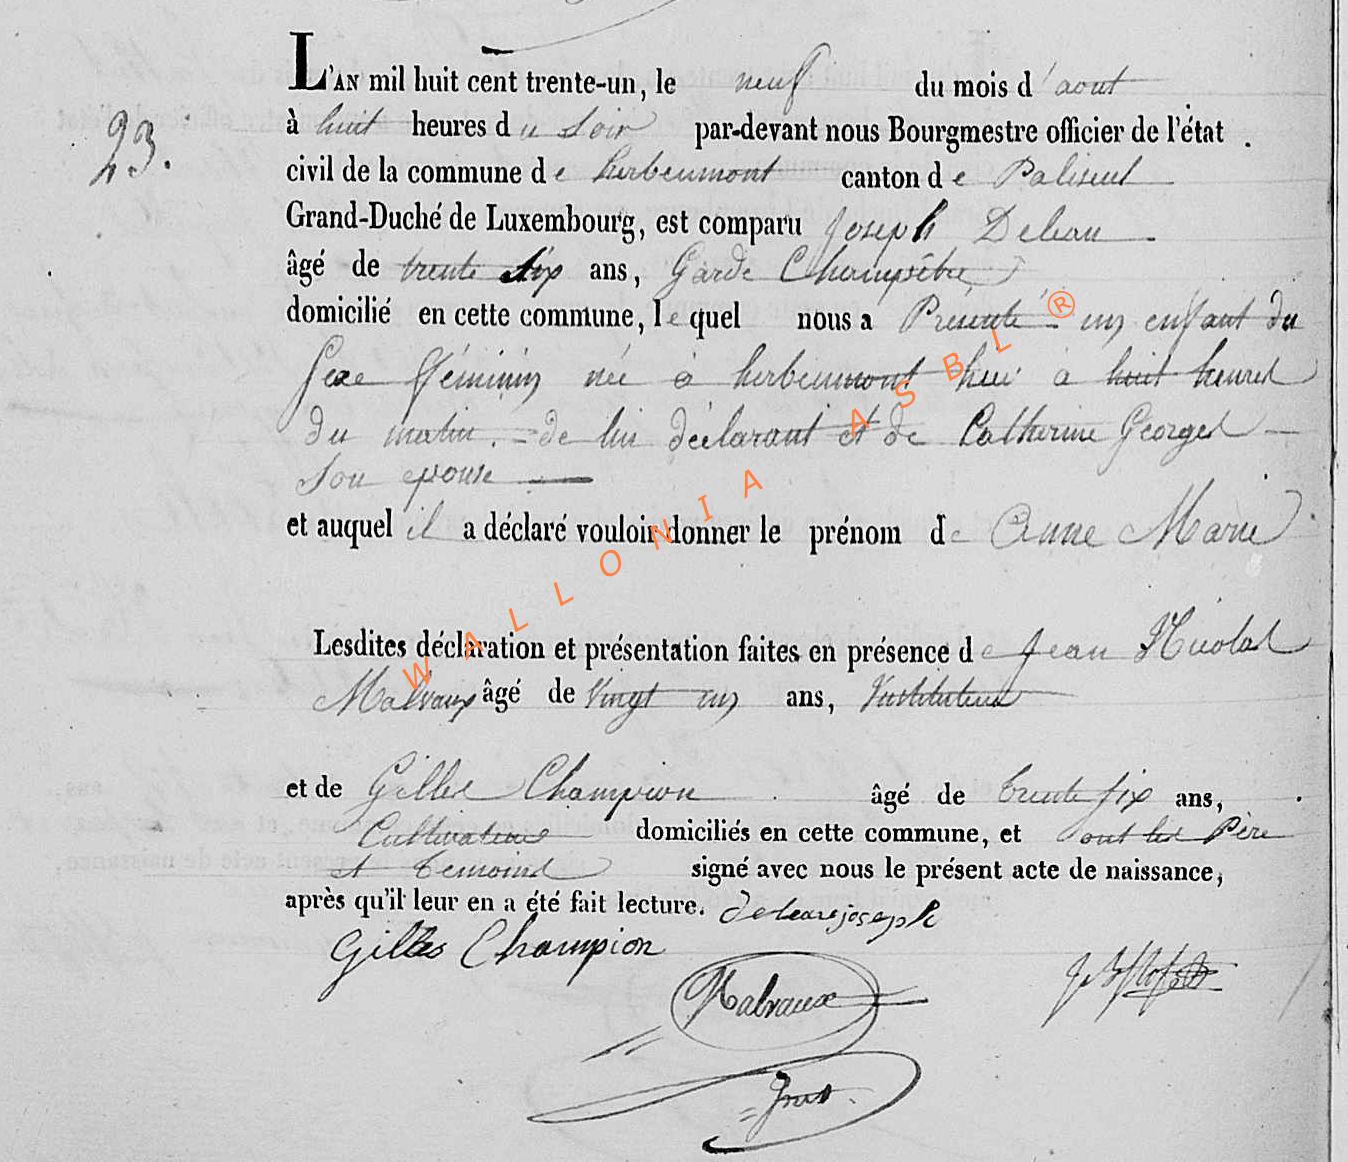 L'AN mil huit cent trente-un, le neuf du mois d'aout
23. à huit heures du soir par-devant nous Bourgmestre officier de l'état
civil de la commune de herbeumont canton de Paliseul
Grand-Duché de Luxembourg, est comparu Joseph Deleau
âgé de trente six ans, Garde Champêtre
domicilié en cette commune, lequel nous a Presenté un enfant du
sexe féminin née a herbeumont hui a huit heures
du matin. de lui déclarant et de Catherine Georges
son epouse
et auquel il a déclaré vouloir donner le prénom de Anne Marie
Lesdites déclaration et présentation faites en présence de Jean Nicolas
Malvaux âgé de Vingt un ans, Instituteur
et de Gilles Champion âgé de trente six ans,
Cultivateur domiciliés en cette commune, et ont les Père
et temoins signé avec nous le présent acte de naissance,
après qu'il leur en a été fait lecture. deleau joseph
Gilles Champion
Malvaux
WALLONIA ASBL ®